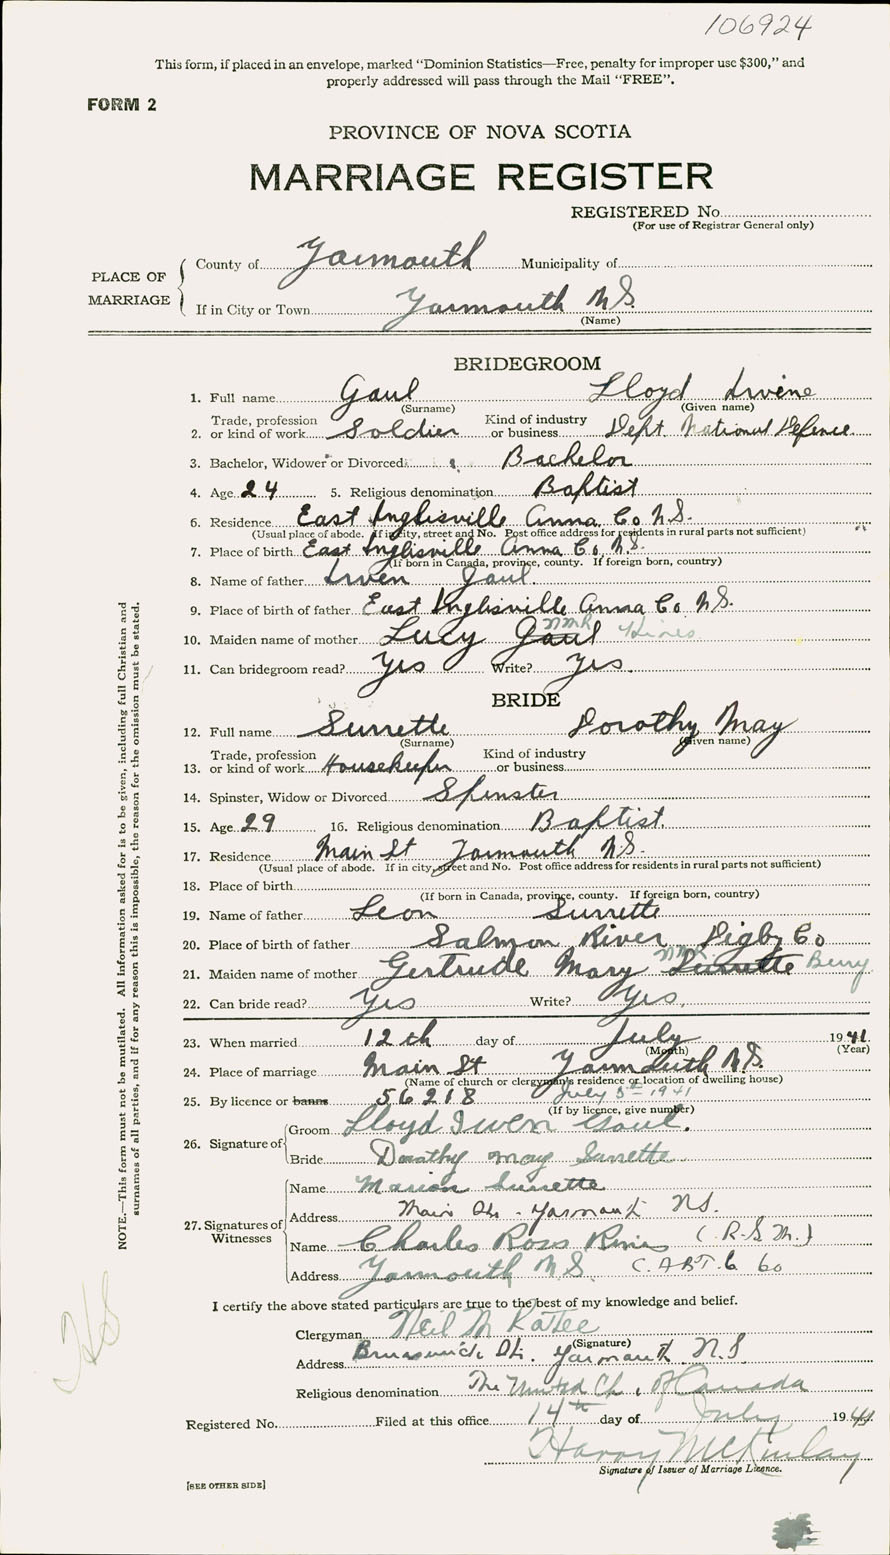 106924
This form, if placed in an envelope, marked "Dominion Statistics—Free, penalty for improper use $300," and
properly addressed will pass through the Mail "FREE".
FORM 2
PROVINCE OF NOVA SCOTIA
MARRIAGE REGISTER
REGISTERED No.
(For use of Registrar General only)
PLACE OF MARRIAGE
County of Yarmouth Municipality of
If in City or Town Yarmouth N.S.
(Name)
BRIDEGROOM
1. Full name Gaul Lloyd Irvine
(Surname) (Given name)
2. Trade, profession or kind of work Soldier Kind of industry or business Dept. National Defence
3. Bachelor, Widower or Divorced Bachelor
4. Age 24 5. Religious denomination Baptist
6. Residence East Inglisville Anna. Co N.S.
(Usual place of abode. If in city, street and No. Post office address for residents in rural parts not sufficient)
7. Place of birth East Inglisville Anna Co. N.S.
(If born in Canada, province, county. If foreign born, country)
8. Name of father Irven Gaul.
9. Place of birth of father East Inglisville Anna Co. N.S.
10. Maiden name of mother Lucy Gaul
11. Can bridegroom read? Yes Write? Yes.
BRIDE
12. Full name Surrette Dorothy May
(Surname) (Given name)
13. Trade, profession or kind of work Housekeeper Kind of industry or business
14. Spinster, Widow or Divorced Spinster
15. Age 29 16. Religious denomination Baptist.
17. Residence Main St Yarmouth N.S.
(Usual place of abode. If in city, street and No. Post office address for residents in rural parts not sufficient)
18. Place of birth
(If born in Canada, province, county. If foreign born, country)
19. Name of father Leon Surrette
20. Place of birth of father Salmon River Digby Co
21. Maiden name of mother Gertrude Mary Surrette Berry
22. Can bride read? Yes Write? Yes.
23. When married 12th day of July 1941.
(Month) (Year)
24. Place of marriage Main St Yarmouth N.S.
(Name of church or clergyman's residence or location of dwelling house)
25. By licence or banns 56218 July 5th 1941
(If by licence, give number)
26. Signature of
Groom Lloyd Irven Gaul.
Bride Dorothy May Surrette
27. Signatures of Witnesses
Name Marion Surrette
Address Main St. - Yarmouth N.S.
Name Charles Ross (R.S.M.)
Address Yarmouth N.S. C.A.B.T.C 60
I certify the above stated particulars are true to the best of my knowledge and belief.
Clergyman Neil M
(Signature)
Address Brunswick St. Yarmouth N.S.
Religious denomination The United Ch. of Canada
Registered No. Filed at this office 14th day of July 1941
Harry McKinlay
Signature of Issuer of Marriage Licence.
[SEE OTHER SIDE]
NOTE.—This form must not be mutilated. All information asked for is to be given, including full Christian and
surnames of all parties, and if for any reason this is impossible, the reason for the omission must be stated.